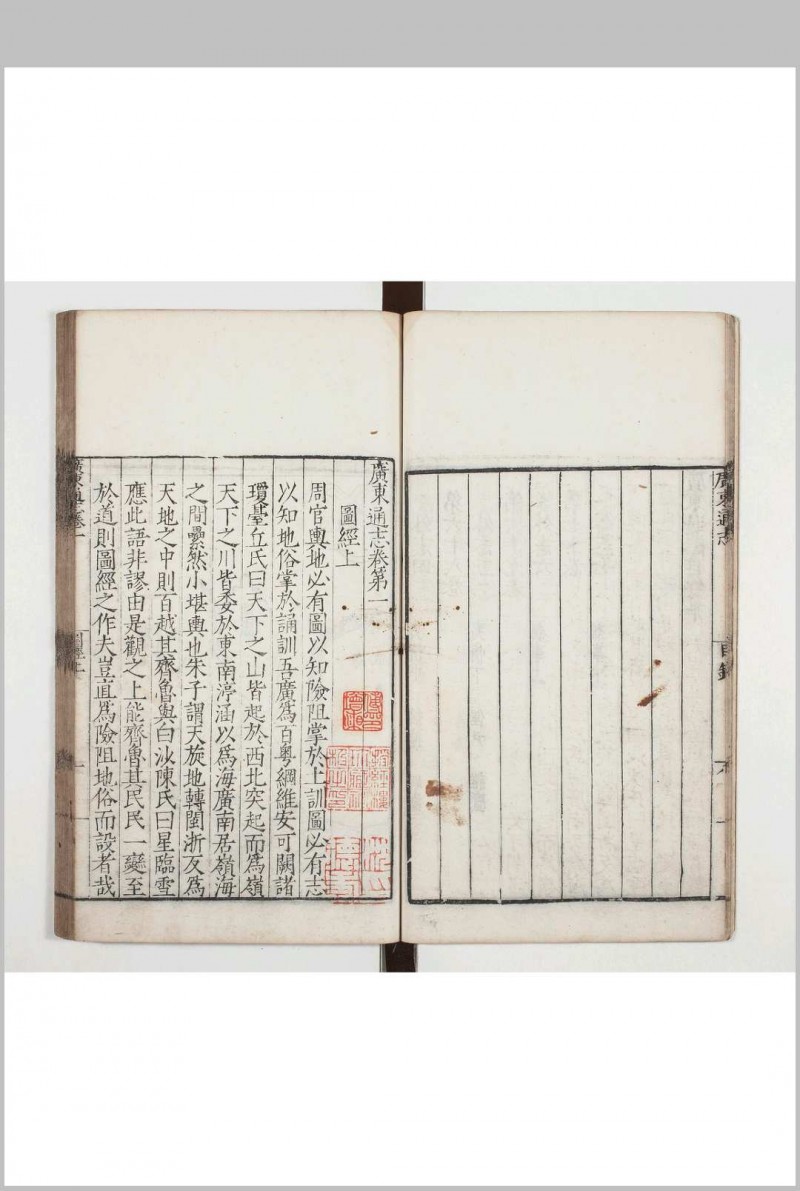 廣東通志
目錄
廣東通志卷第一
圖經上
周官輿地必有圖以知險阻掌於土訓圖必有志
以知地俗掌於誦訓吾廣為百粵綱維安可闕諸
瓊臺丘氏曰天下之山皆起於西北突起而為嶺
天下之川皆委於東南渟涵以為海廣南居嶺海
之間纍然小堪輿也朱子謂天旋地轉閩浙反為
天地之中則百越其齊魯與白沙陳氏曰星臨雪
應此語非謬由是觀之上能齊魯其民民一變至
於道則圖經之作夫豈直為險阻地俗而設者哉
圖經上